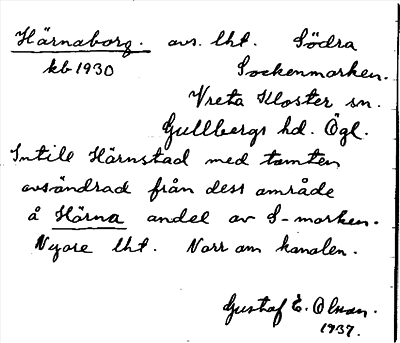 Härnaborg. avs. lht. Södra
kb 1930 Sockenmarken.
Vreta Kloster sn.
Gullbergs hd. Ögl.
Intill Härnstad med tomten
avsöndrad från dess område
å Härna andel av S-marken.
Nyare lht. Norr om kanalen.
Gustaf E. Olsson.
1937.